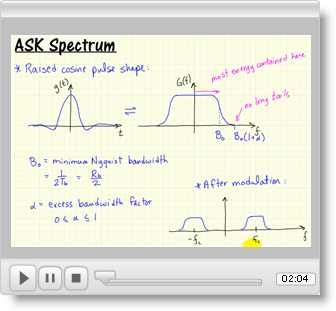 ASK Spectrum
* Raised cosine pulse shape:
g(t)
t
⇌
G(f)
most energy contained here
no long tails
f
B₀ B₀(1+α)
B₀ = minimum Nyquist bandwidth
= 1/2T_b = R_b/2
α = excess bandwidth factor
0 ≤ α ≤ 1
* After modulation:
-f_c f_c f
02:04